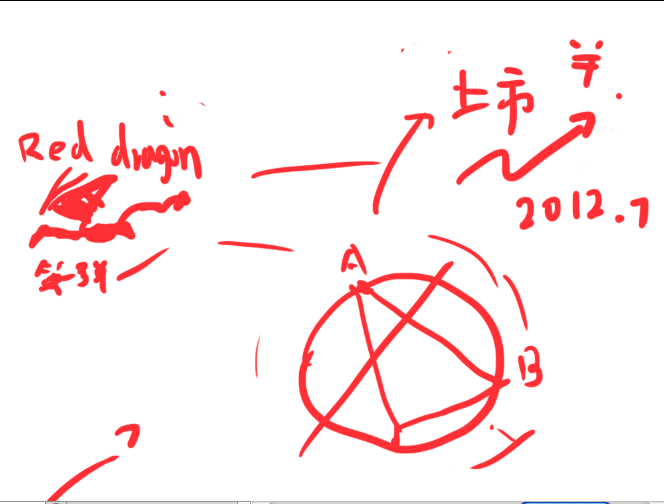 Red dragon
上市 ¥
2012.7
A
B